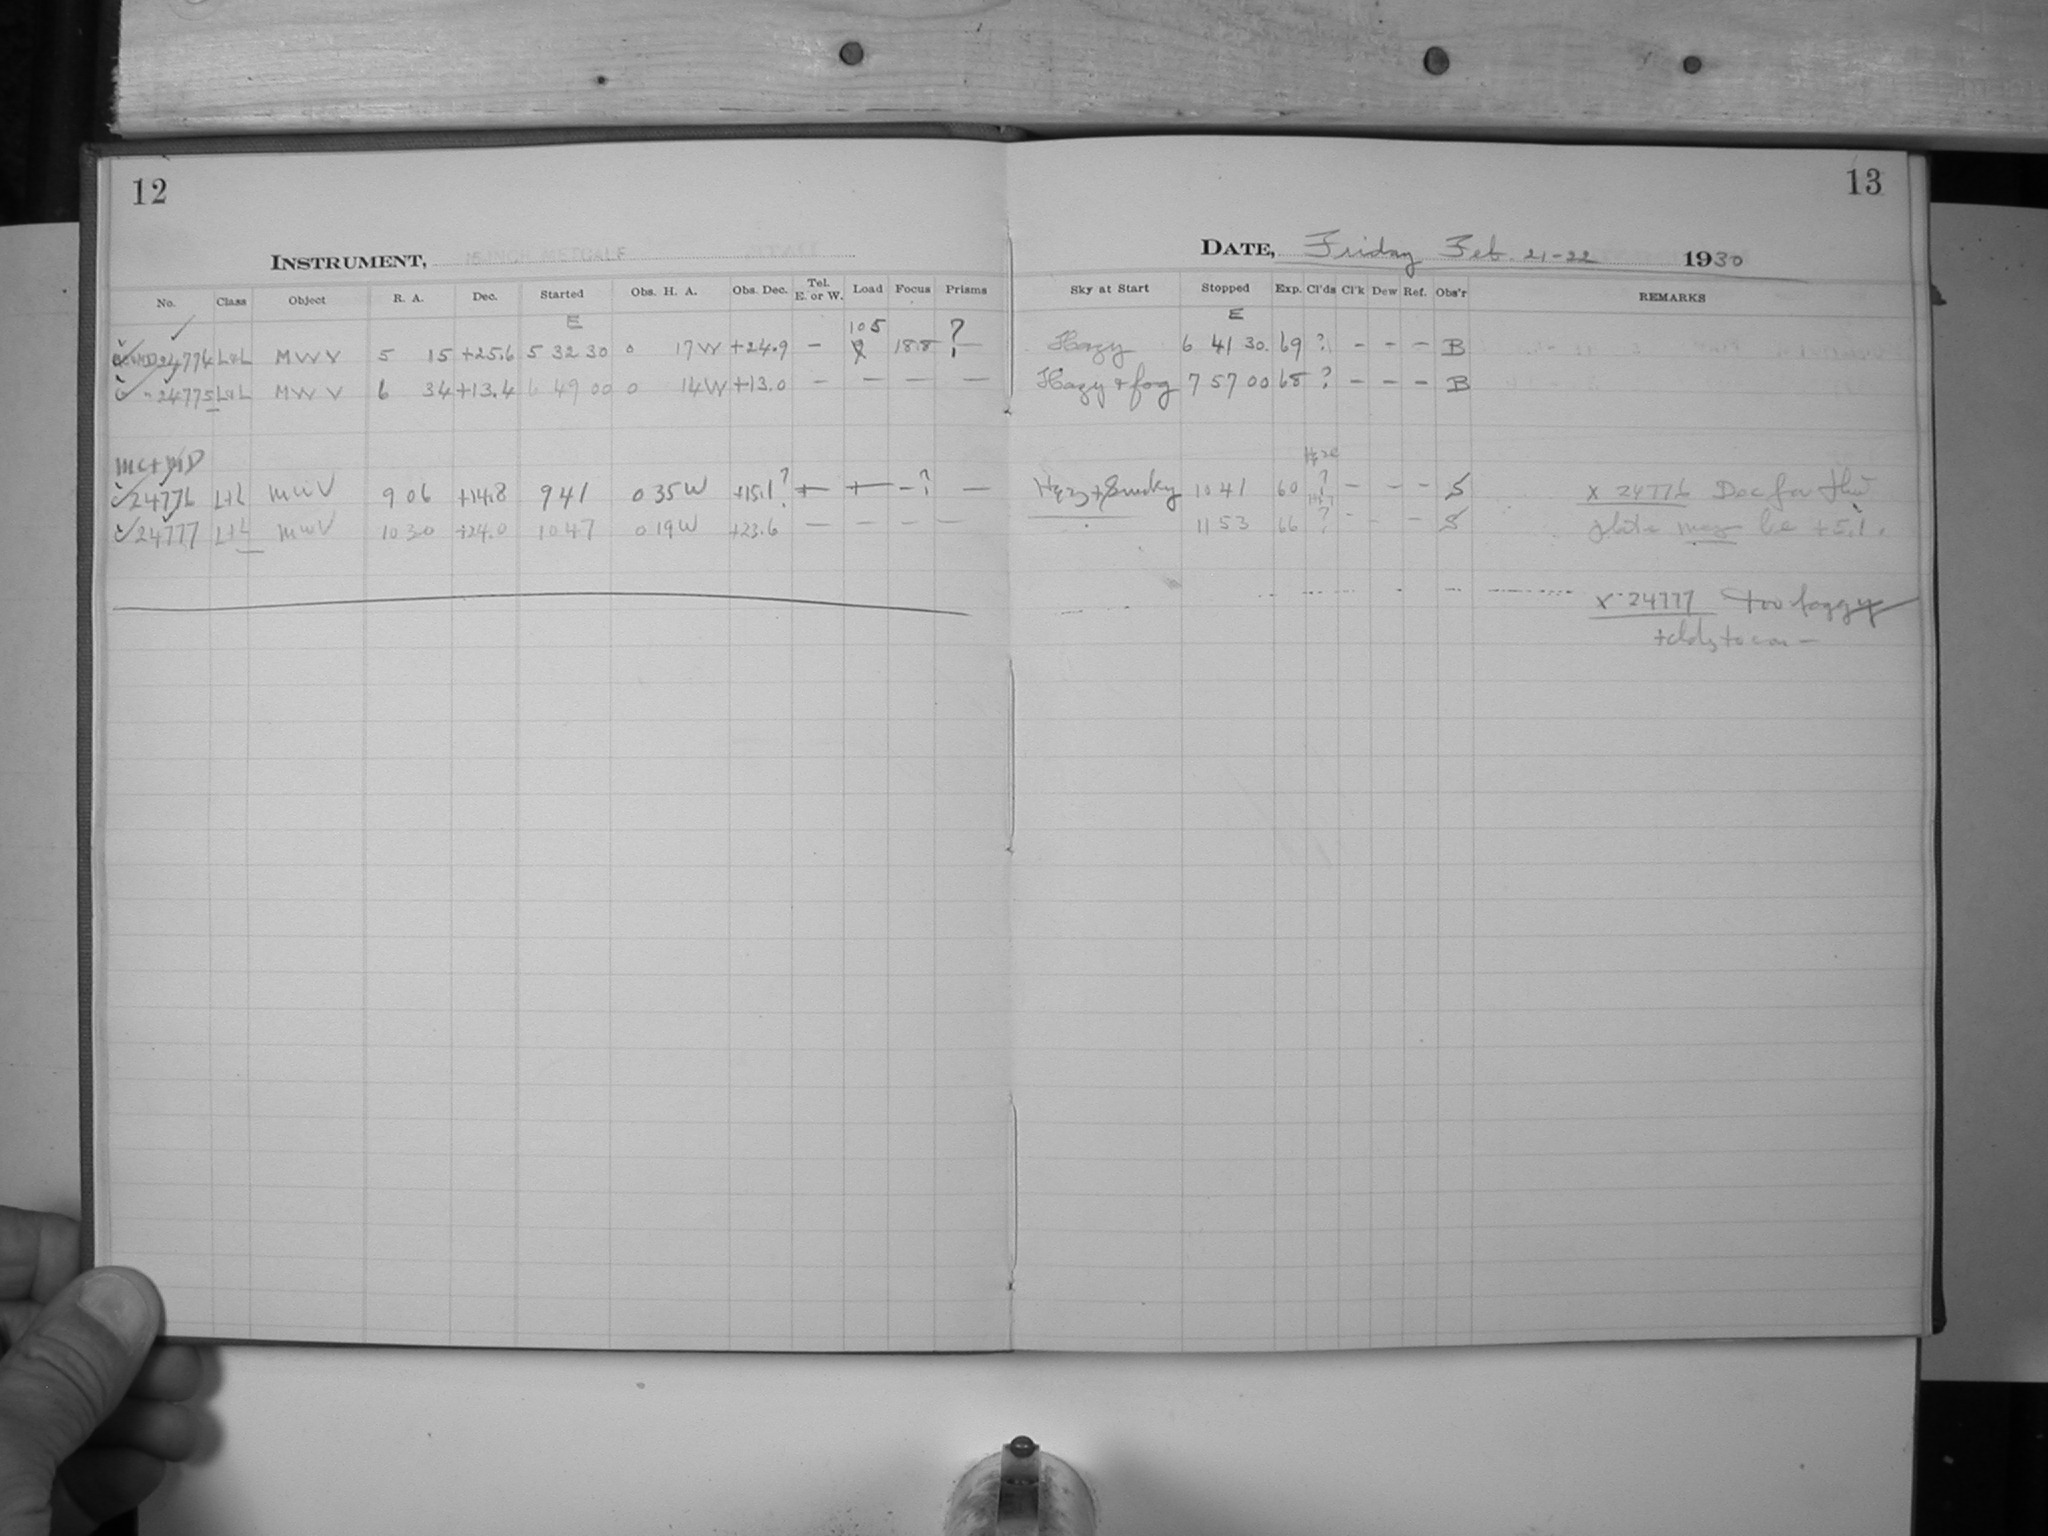 12
13
INSTRUMENT, 16 INCH METCALF
DATE, Friday Feb. 21-22 1930
No. Class Object R. A. Dec. Started Obs. H. A. Obs. Dec. Tel. E. or W. Load Focus Prisms
Sky at Start Stopped Exp. Cl'ds Cl'k Dew Ref. Obs'r REMARKS
E 105 E
24774 L+L MWV 5 15 +25.6 5 32 30 0 17W +24.9 — 9 18.8 ? — Hazy 6 41 30. 69 ? - - - B
" 24775 L+L MWV 6 34 +13.4 6 49 00 0 14W +13.0 — — — — Hazy + fog 7 57 00 68 ? - - - B
MC+MD Haze
24776 L+L MWV 9 06 +14.8 9 41 0 35W +15.1? — — -? — Hazy + Smoky 10 41 60 ? - - - S x 24776 Dec for this
24777 L+L MWV 10 30 +24.0 10 47 0 19W +23.6 — — — — 11 53 66 ? - - - S plate may be +5.1.
x 24777 too foggy